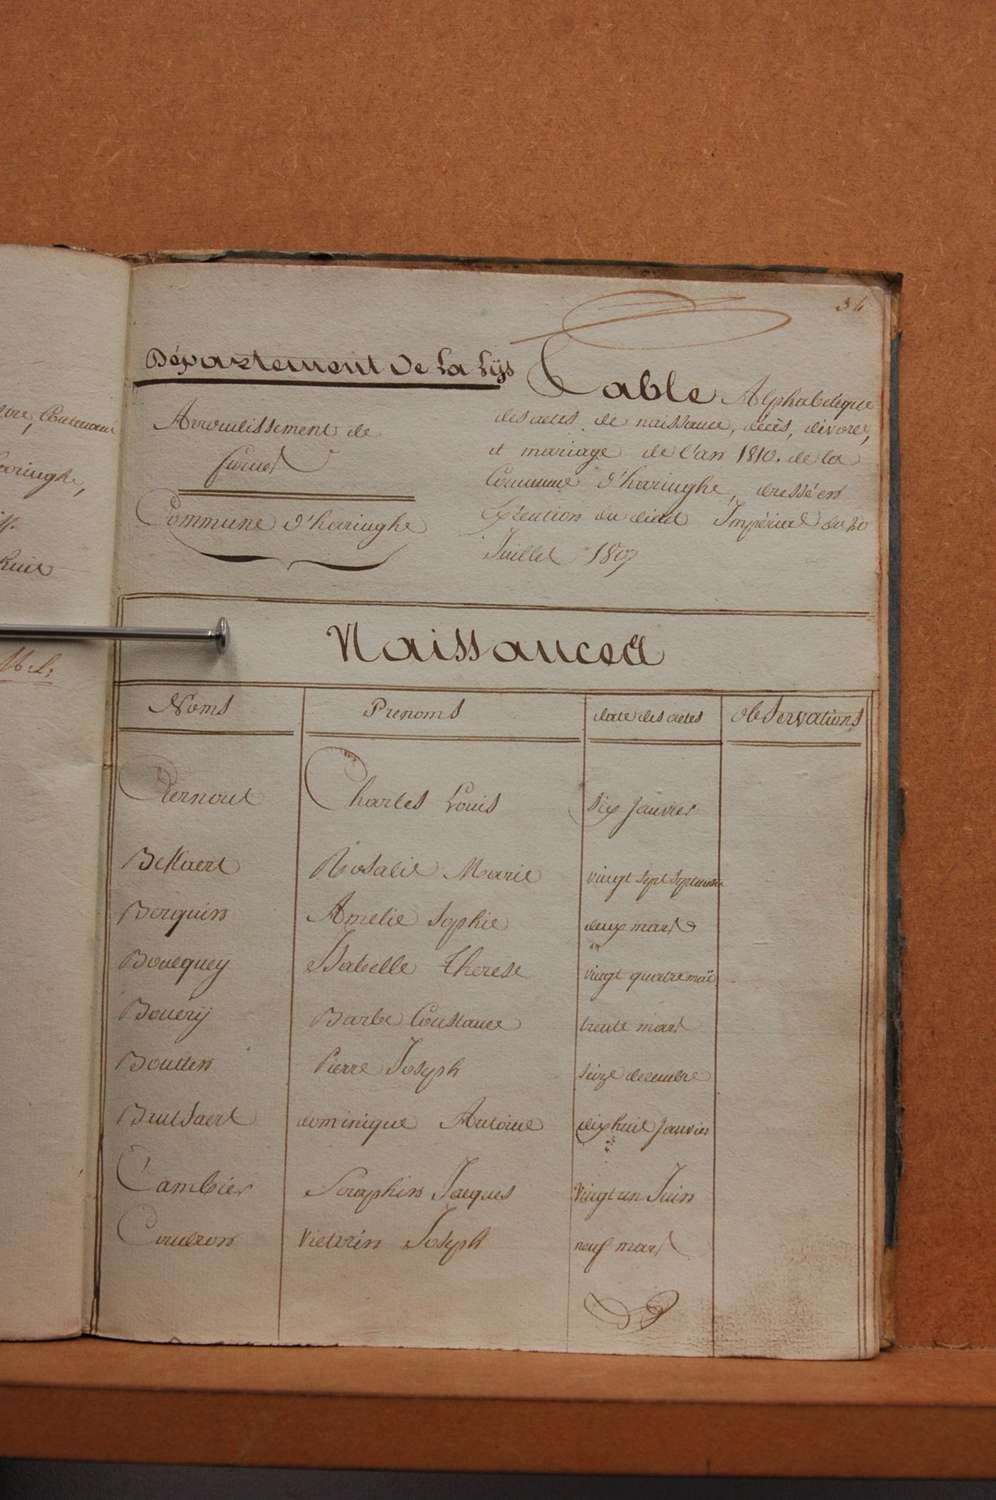 34
Département De La Lÿs
Arrondissement de
furnes
Commune d'haringhe
Table Alphabetique
des actes de naissance, décès, divorce,
et mariage de l'an 1810. de la
Commune d'haringhe, dressé en
Exécution du décret Impérial du 20
Juillet 1807
Naissances
Noms Prenoms date des actes observations
Charles Louis six janvier
Bekaert Rosalie Marie vingt sept septembre
Berquin Amelie Sophie deux mars
Boucquey Isabelle Therese vingt quatre maï
Bouerÿ Barbe Constance trente mars
Boutten Pierre Joseph seize decembre
Butsaert dominique Antoine dix huit janvier
Cambier Seraphin Jacques vingt un Juin
Couvron Victorin Joseph neuf mars